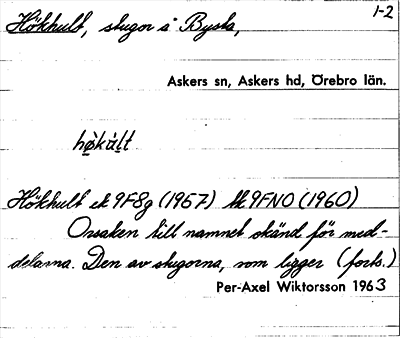 1-2
Hökhult, stugor å Bysta,
Askers sn, Askers hd, Örebro län.
hø̀kúlt
Hökhult ek 9F8g (1957) tk 9FNO (1960)
Orsaken till namnet okänd för med-
delarna. Den av stugorna, som ligger (forts.)
Per-Axel Wiktorsson 1963